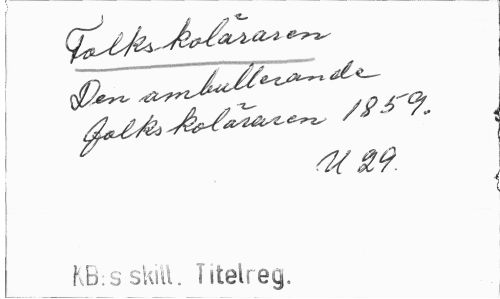 Folkskoläraren
Den ambullerande
folkskoläraren 1859.
U 29.
KB:s skill. Titelreg.